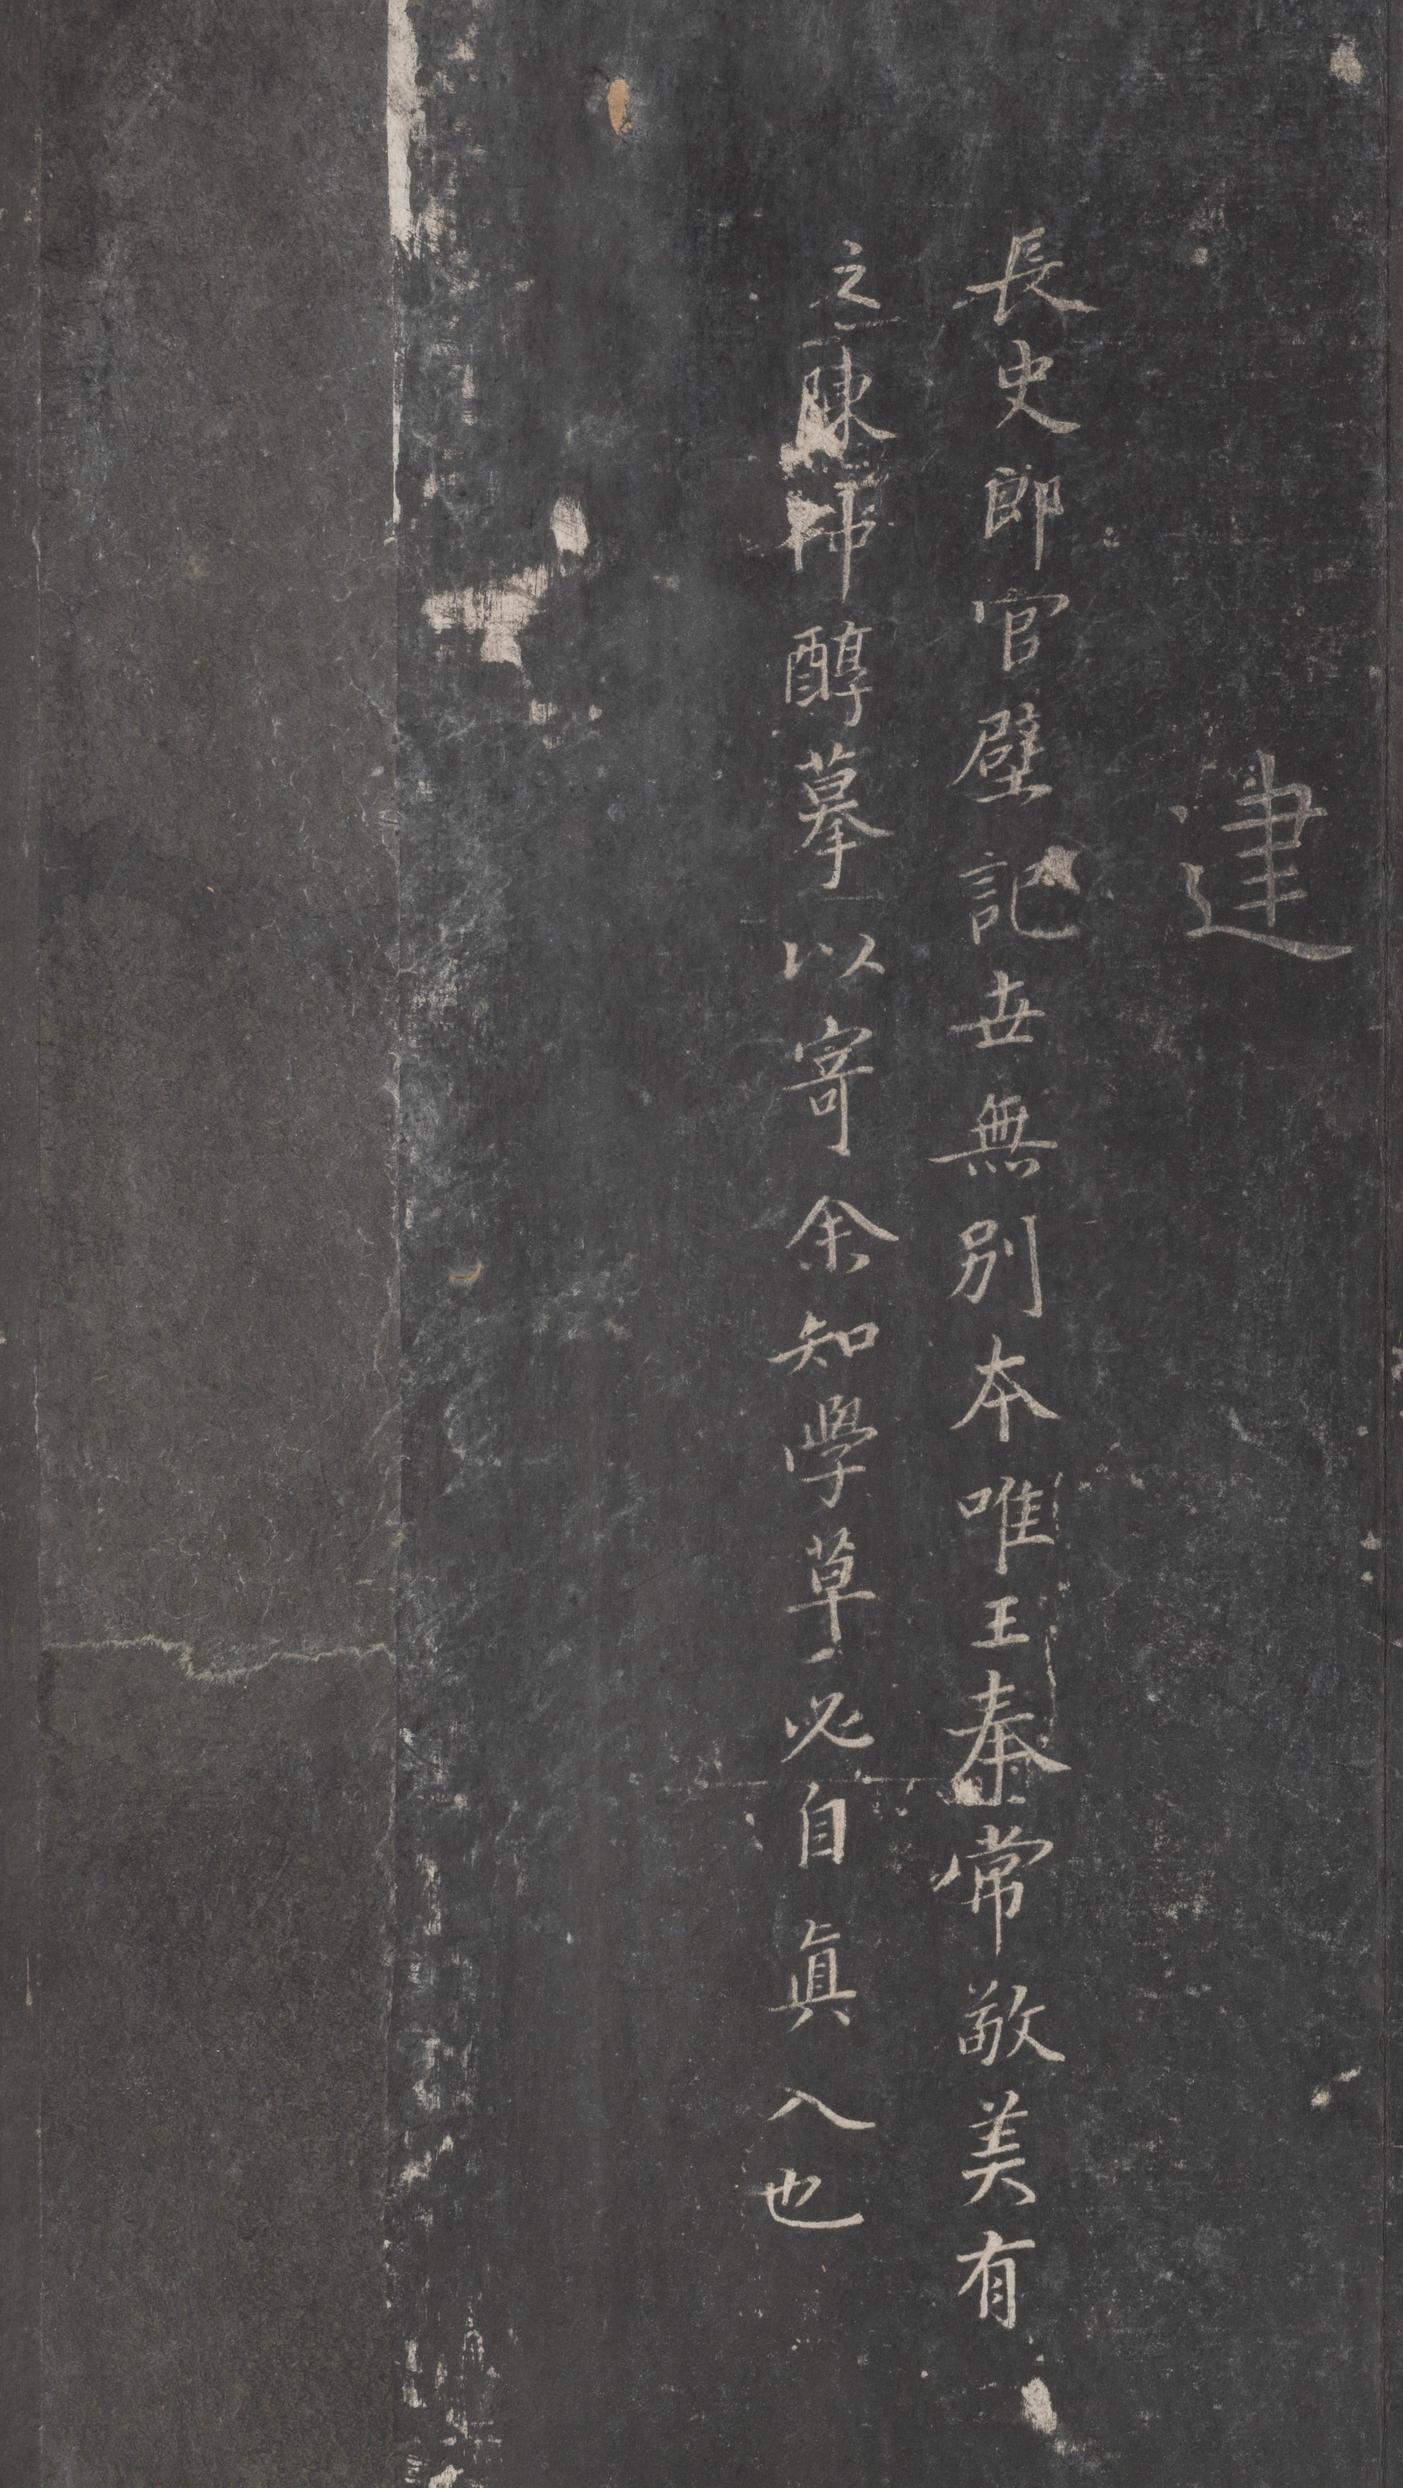 建
長史郎官壁記世無別本唯王奉常敬美有
之陳仲醇摹以寄余知學草必自真入也